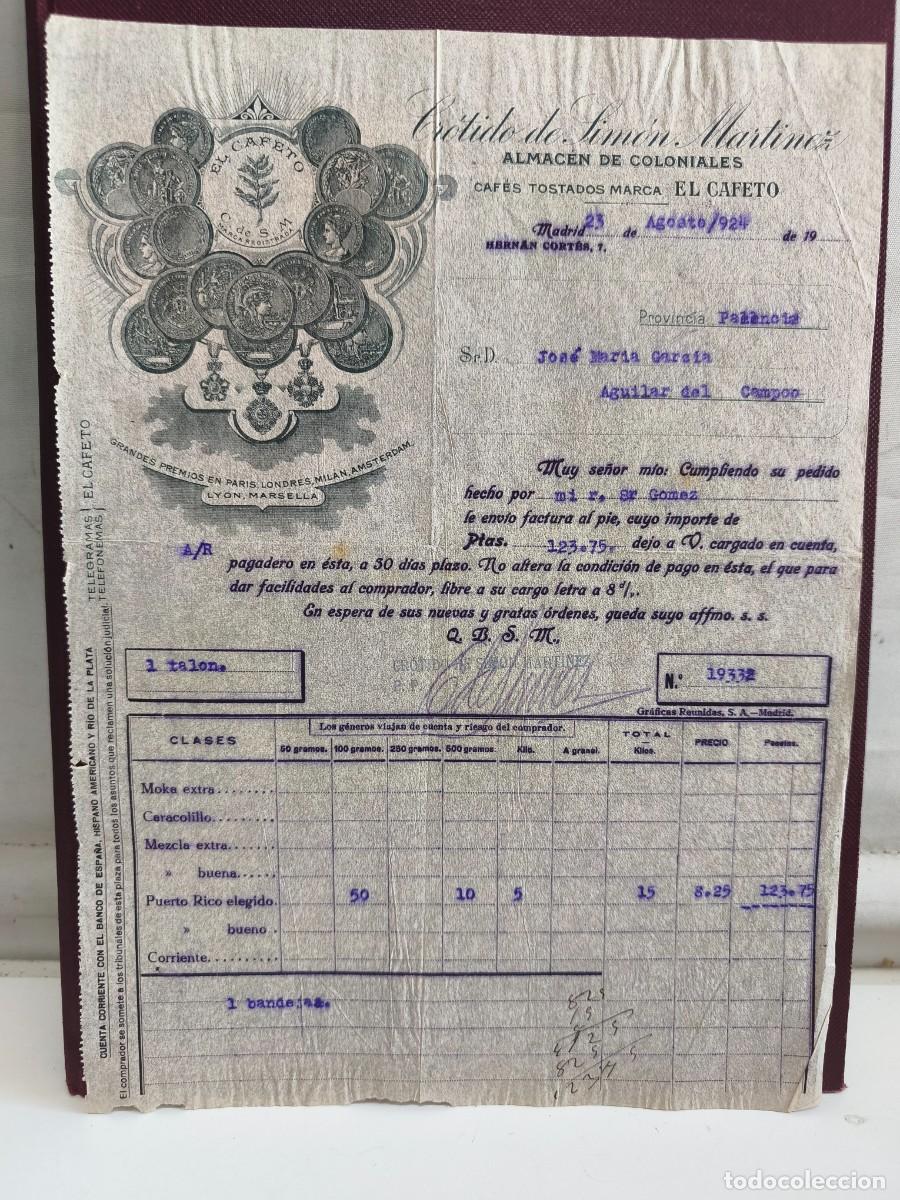 EL CAFETO
C. de S. M.
MARCA REGISTRADA
GRANDES PREMIOS EN PARIS, LONDRES, MILÁN, AMSTERDAM,
LYON, MARSELLA
Crótido de Simón Martinez
ALMACÉN DE COLONIALES
CAFÉS TOSTADOS MARCA EL CAFETO
Madrid 23 de Agosto/924 de 19
HERNÁN CORTÉS, 7.
Provincia Palencia
Sr. D. José Maria Garcia
Aguilar del Campoo
Muy señor mío: Cumpliendo su pedido
hecho por mi r. Sr Gomez
le envío factura al pie, cuyo importe de
Ptas. 123.75. dejo a V. cargado en cuenta,
A/R
pagadero en ésta, a 30 días plazo. No altera la condición de pago en ésta, el que para
dar facilidades al comprador, libre a su cargo letra a 8 d/.
En espera de sus nuevas y gratas órdenes, queda suyo affmo. s. s.
Q. B. S. M.,
CRÓTIDO DE SIMÓN MARTINEZ
P. P.
1 talon.
N.º 19332
Gráficas Reunidas, S. A.—Madrid.
Los géneros viajan de cuenta y riesgo del comprador.
CLASES 50 gramos. 100 gramos. 250 gramos. 500 gramos. Kilo. A granel. TOTAL Kilos. PRECIO Pesetas.
Moka extra........
Caracolillo.........
Mezcla extra.......
» buena......
Puerto Rico elegido. 50 10 5 15 8.25 123.75
» bueno .
Corriente..........
1 bandejas.
825
15
4125
825
TELEGRAMAS
TELEFONEMAS
EL CAFETO
CUENTA CORRIENTE CON EL BANCO DE ESPAÑA, HISPANO AMERICANO Y RIO DE LA PLATA
El comprador se somete a los tribunales de esta plaza para todos los asuntos que reclamen una solución judicial
todocoleccion